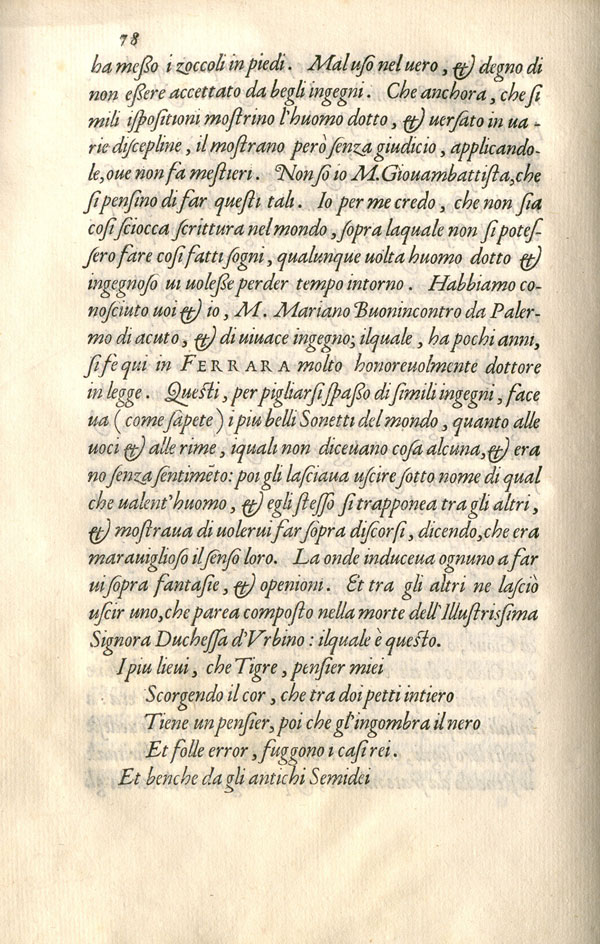 78
ha meßo i zoccoli in piedi. Mal uso nel uero, & degno di
non eßere accettato da begli ingegni. Che anchora, che si
mili ispositioni mostrino l'huomo dotto, & uersato in ua-
rie discepline, il mostrano però senza giudicio, applicando-
le, oue non fa mestieri. Non so io M. Giouambattista, che
si pensino di far questi tali. Io per me credo, che non sia
cosi sciocca scrittura nel mondo, sopra laquale non si potes-
sero fare cosi fatti sogni, qualunque uolta huomo dotto &
ingegnoso ui uoleße perder tempo intorno. Habbiamo co-
nosciuto uoi & io, M. Mariano Buonincontro da Paler-
mo di acuto, & di uiuace ingegno; ilquale, ha pochi anni,
si fe qui in FERRARA molto honoreuolmente dottore
in legge. Questi, per pigliarsi spaßo di simili ingegni, face
ua (come sapete) i piu belli Sonetti del mondo, quanto alle
uoci & alle rime, iquali non diceuano cosa alcuna, & era
no senza sentimẽto: poi gli lasciaua uscire sotto nome di qual
che ualent'huomo, & egli stesso si trapponea tra gli altri,
& mostraua di uolerui far sopra discorsi, dicendo, che era
marauiglioso il senso loro. La onde induceua ognuno a far
ui sopra fantasie, & openioni. Et tra gli altri ne lasciò
uscir uno, che parea composto nella morte dell'Illustrissima
Signora Duchessa d'Vrbino: ilquale è questo.
I piu lieui, che Tigre, pensier miei
Scorgendo il cor, che tra doi petti intiero
Tiene un pensier, poi che gl'ingombra il nero
Et folle error, fuggono i casi rei.
Et benche da gli antichi Semidei